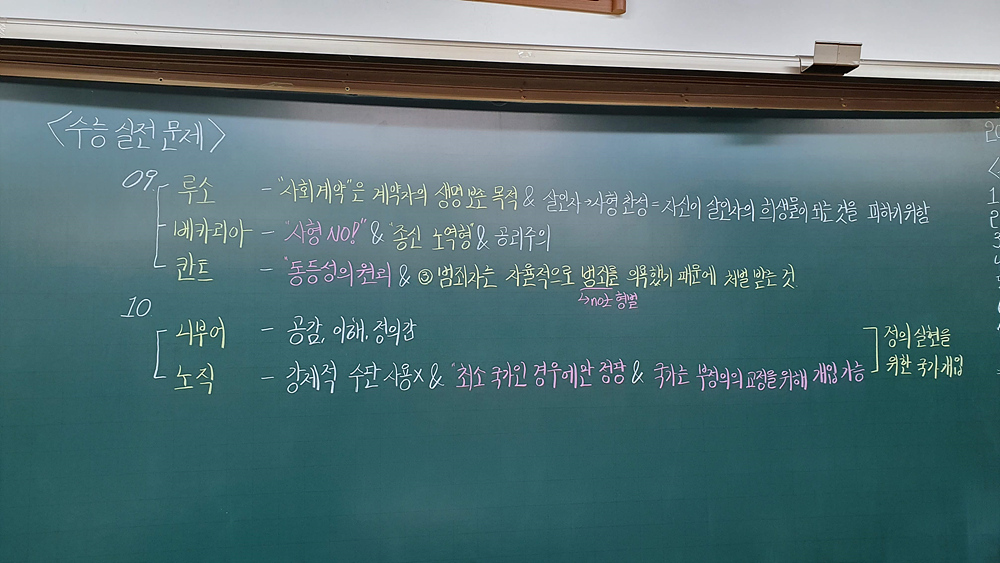 <수능 실전 문제>
09 루소 - "사회계약"은 계약자의 생명 보존 목적 & 살인자→사형 찬성 = 자신이 살인자의 희생물이 되는 것을 피하기 위함
베카리아 - "사형 NO!" & "종신 노역형" & 공리주의
칸트 - "동등성의 원리 & ③ 범죄자는 자율적으로 범죄를 의욕했기 때문에 처벌 받는 것
↳not 형벌
10
니부어 - 공감, 이해, 정의감
노직 - 강제적 수단 사용X & "최소 국가인 경우에만 정당 & 국가는 부정의의 교정을 위해 개입 가능
정의 실현을
위한 국가 개입
20
<
1